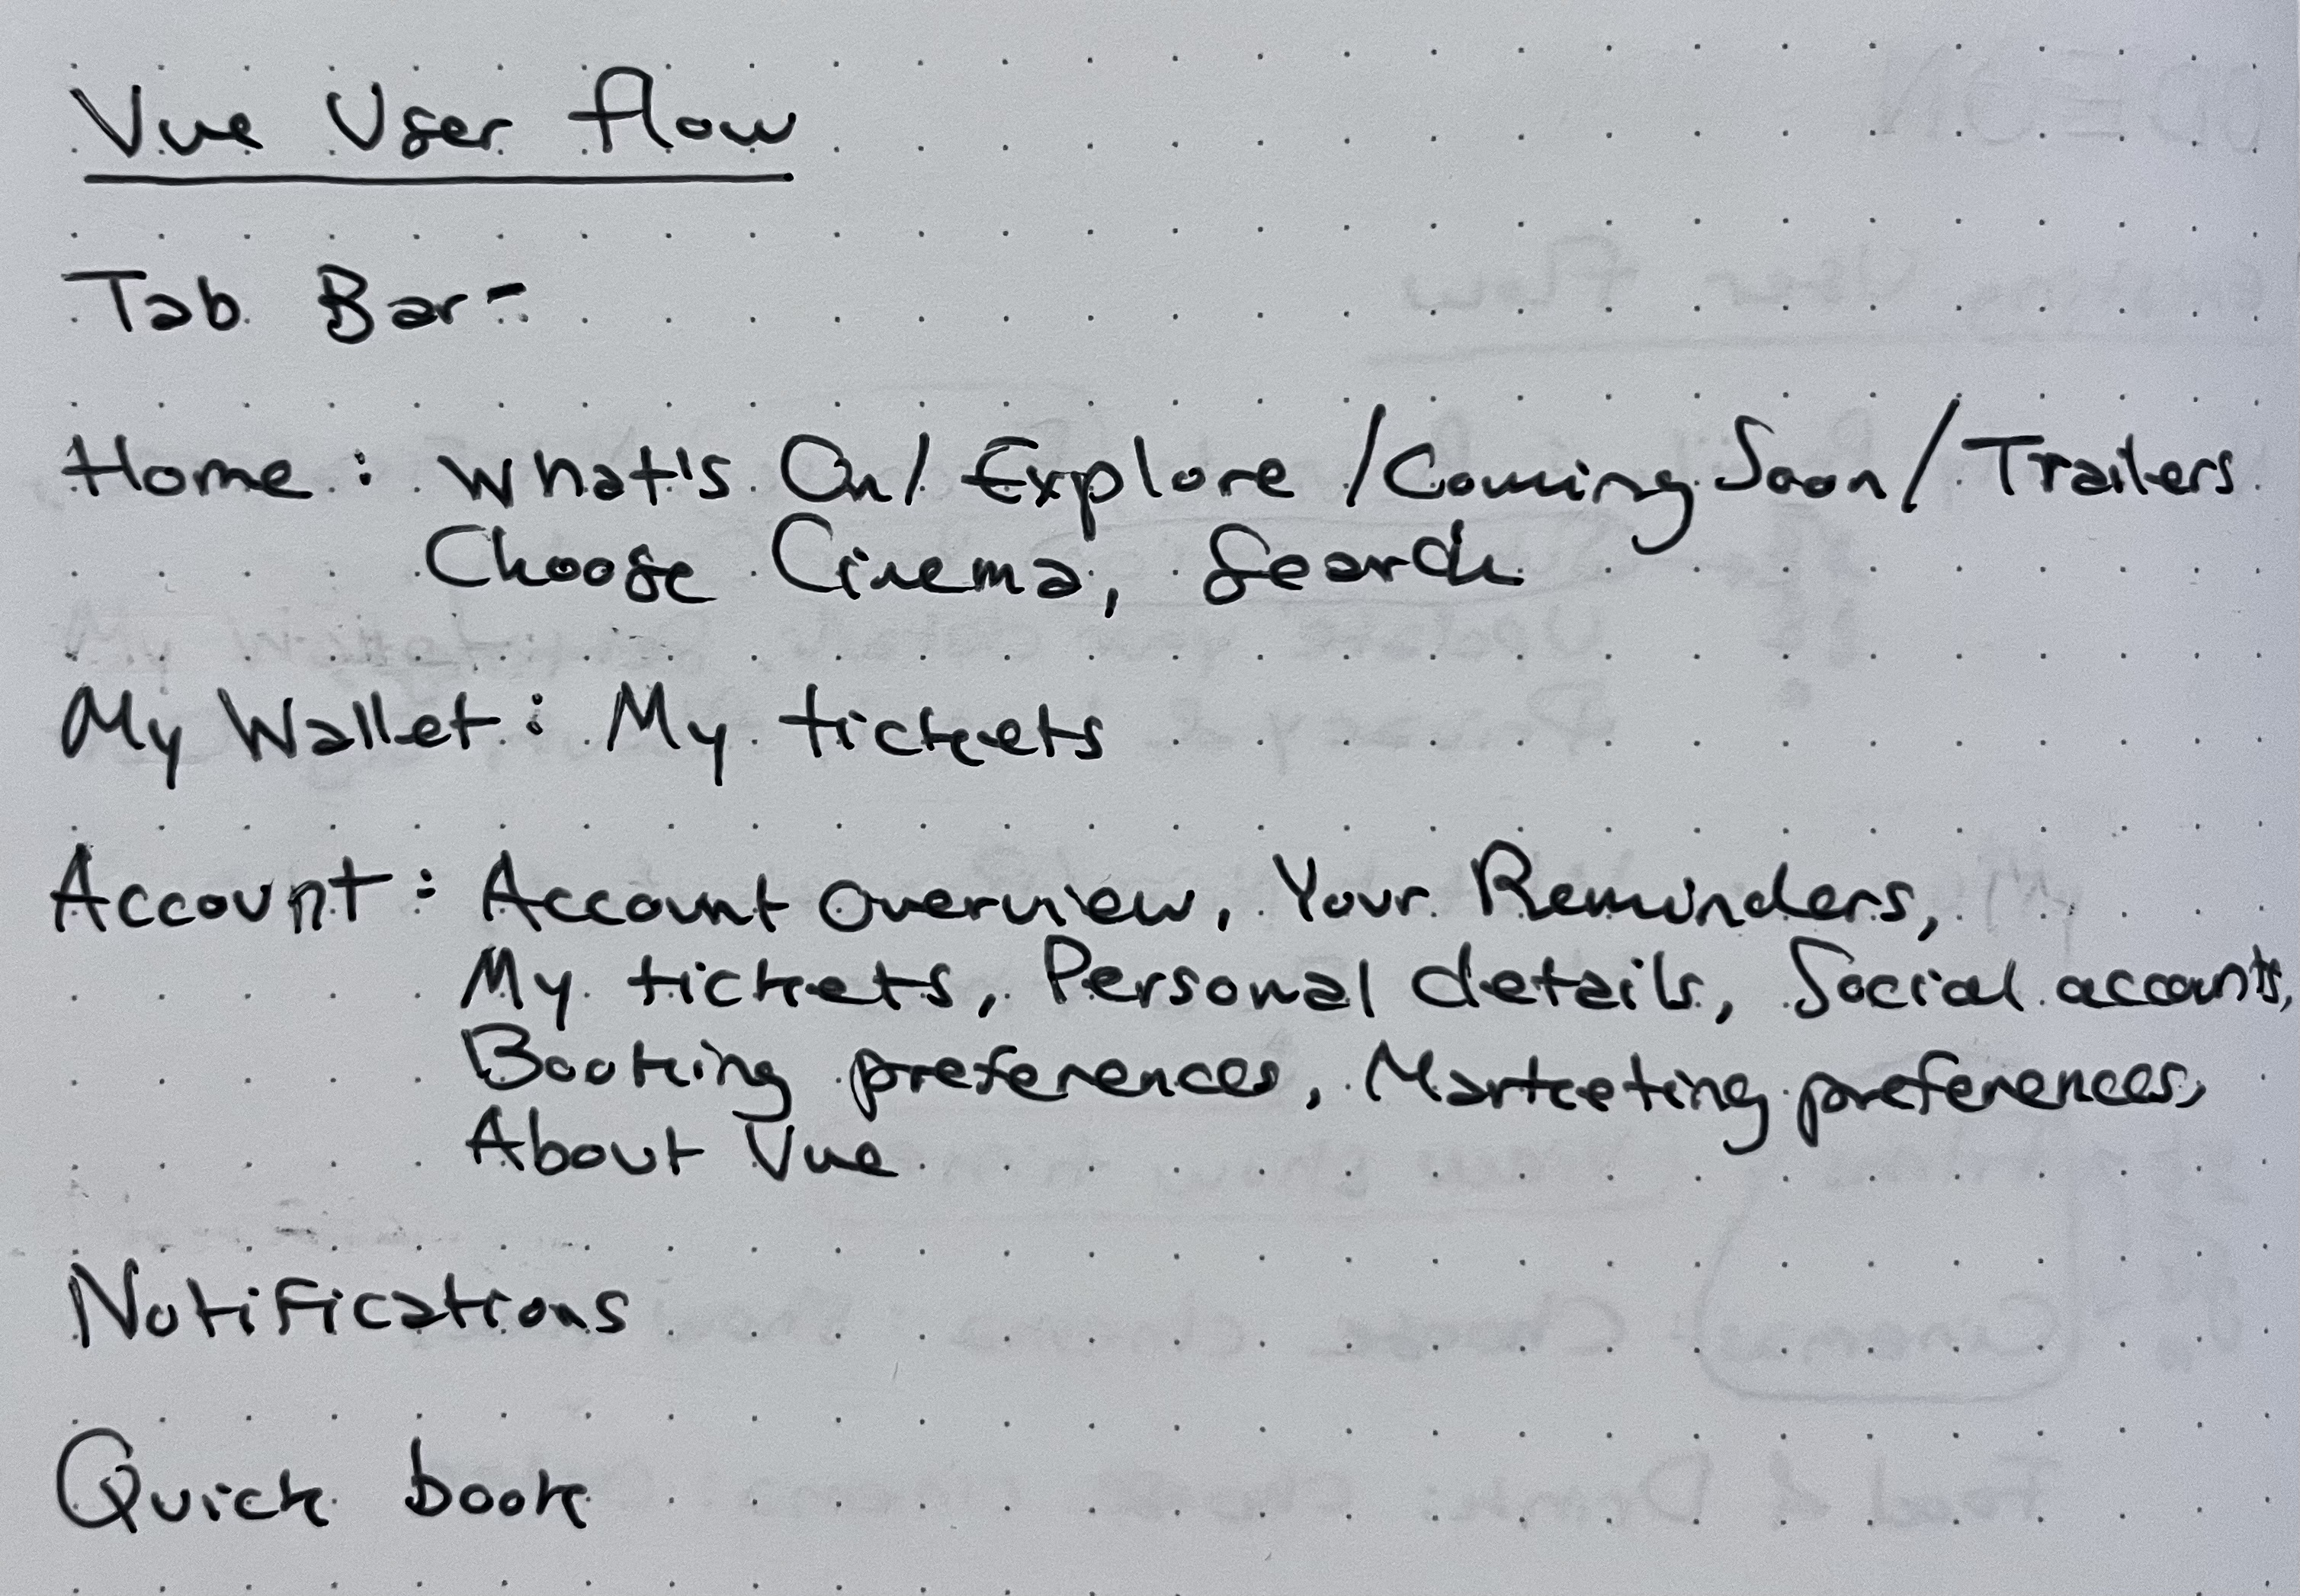 Vue User flow
Tab Bar:
Home: What's On/ Explore /Coming Soon/ Trailers
Choose Cinema, Search
My Wallet: My tickets
Account: Account overview, Your Reminders,
My tickets, Personal details, Social accounts,
Booking preferences, Marketing preferences,
About Vue
Notifications
Quick book